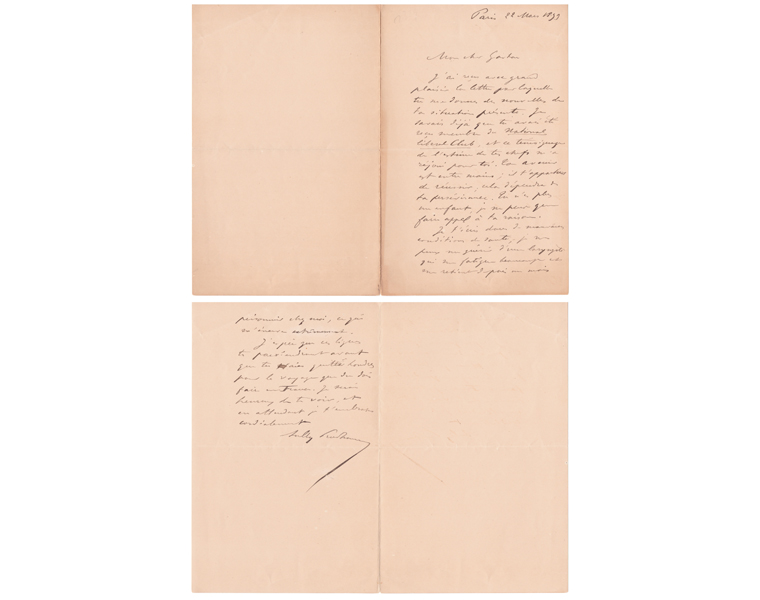 Paris 22 Mars 1893
Mon cher Gaston
J'ai reçu avec grand
plaisir ta lettre par laquelle
tu me donnes des nouvelles de
ta situation présente. Je
savais déjà que tu avais été
reçu membre du National
Liberal Club, et ce témoignage
de l'estime de tes chefs m'a
réjoui pour toi. Ton avenir
est entre mains; il t'appartient
de réussir, cela dépendra de
ta persévérance. Tu n'es plus
un enfant, je ne peux que
faire appel à ta raison.
Je t'écris dans de mauvaises
conditions de santé, je ne
peux me guérir d'une laryngite
qui me fatigue beaucoup et
me retient depuis un mois
prisonnier chez moi, ce qui
m'énerve extrêmement.
J'espère que ces lignes
te parviendront avant
que tu aies quitté Londres
pour le voyage que tu dois
faire en France. Je serai
heureux de te voir, et
en attendant je t'embrasse
cordialement
Sully Prudhomme